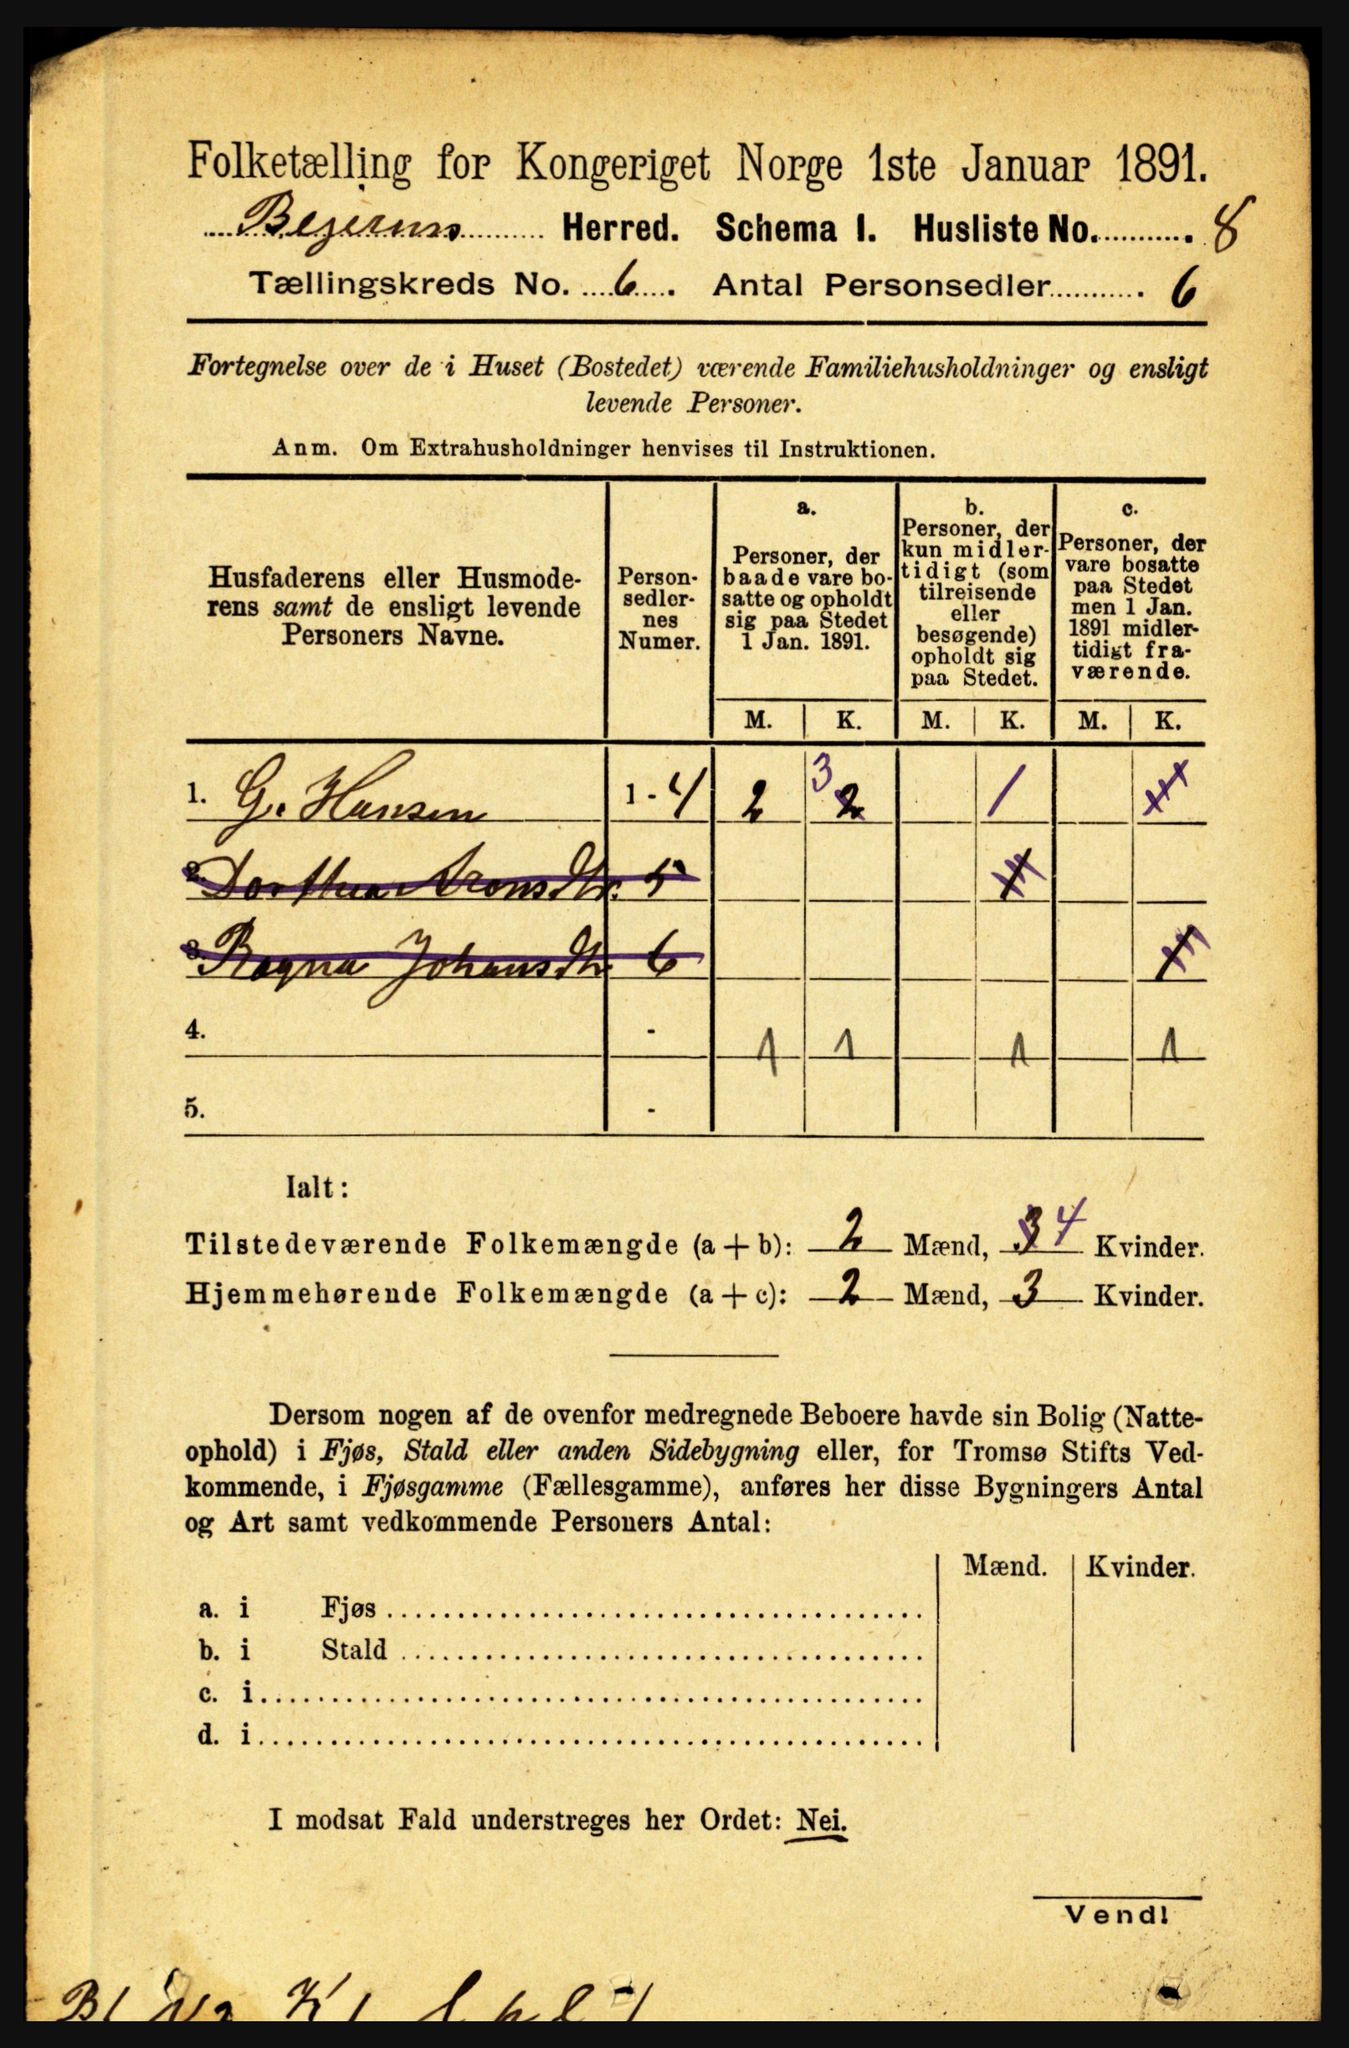 Folketælling for Kongeriget Norge 1ste Januar 1891.
Bejerns Herred. Schema I. Husliste No. 8
Tællingskreds No. 6. Antal Personsedler 6
Fortegnelse over de i Huset (Bostedet) værende Familiehusholdninger og ensligt
levende Personer.
Anm. Om Extrahusholdninger henvises til Instruktionen.
Husfaderens eller Husmode-
rens samt de ensligt levende
Personers Navne.
Person-
sedler-
nes
Numer.
a.
Personer, der
baade vare bo-
satte og opholdt
sig paa Stedet
1 Jan. 1891.
b.
Personer, der
kun midler-
tidigt (som
tilreisende
eller
besøgende)
opholdt sig
paa Stedet.
c.
Personer, der
vare bosatte
paa Stedet
men 1 Jan.
1891 midler-
tidigt fra-
værende.
M. K. M. K. M. K.
1. G. Hansen 1 - 4 2 3 2 1
2. Dorthea Aronsdtr. 5
3. Ragna Johansdtr. 6 1
4. - 1 1 1 1
5. -
Ialt:
Tilstedeværende Folkemængde (a + b): 2 Mænd, 3 4 Kvinder.
Hjemmehørende Folkemængde (a + c): 2 Mænd, 3 Kvinder.
Dersom nogen af de ovenfor medregnede Beboere havde sin Bolig (Natte-
ophold) i Fjøs, Stald eller anden Sidebygning eller, for Tromsø Stifts Ved-
kommende, i Fjøsgamme (Fællesgamme), anføres her disse Bygningers Antal
og Art samt vedkommende Personers Antal:
Mænd. Kvinder.
a. i Fjøs
b. i Stald
c. i
d. i
I modsat Fald understreges her Ordet: Nei.
Vend!